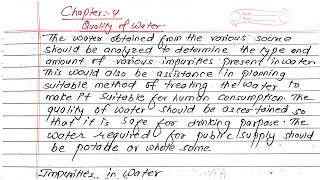 Chapter:-4
Quality of Water
The water obtained from the various source
should be analyzed to determine the type and
amount of various impurities present in water.
This would also be assistance in planning
suitable method of treating the water to
make it suitable for human consumption. The
quality of water should be ascertained so
that it is safe for drinking parpose. The
water required for public supply should
be potable or whole some.
Impurities in water